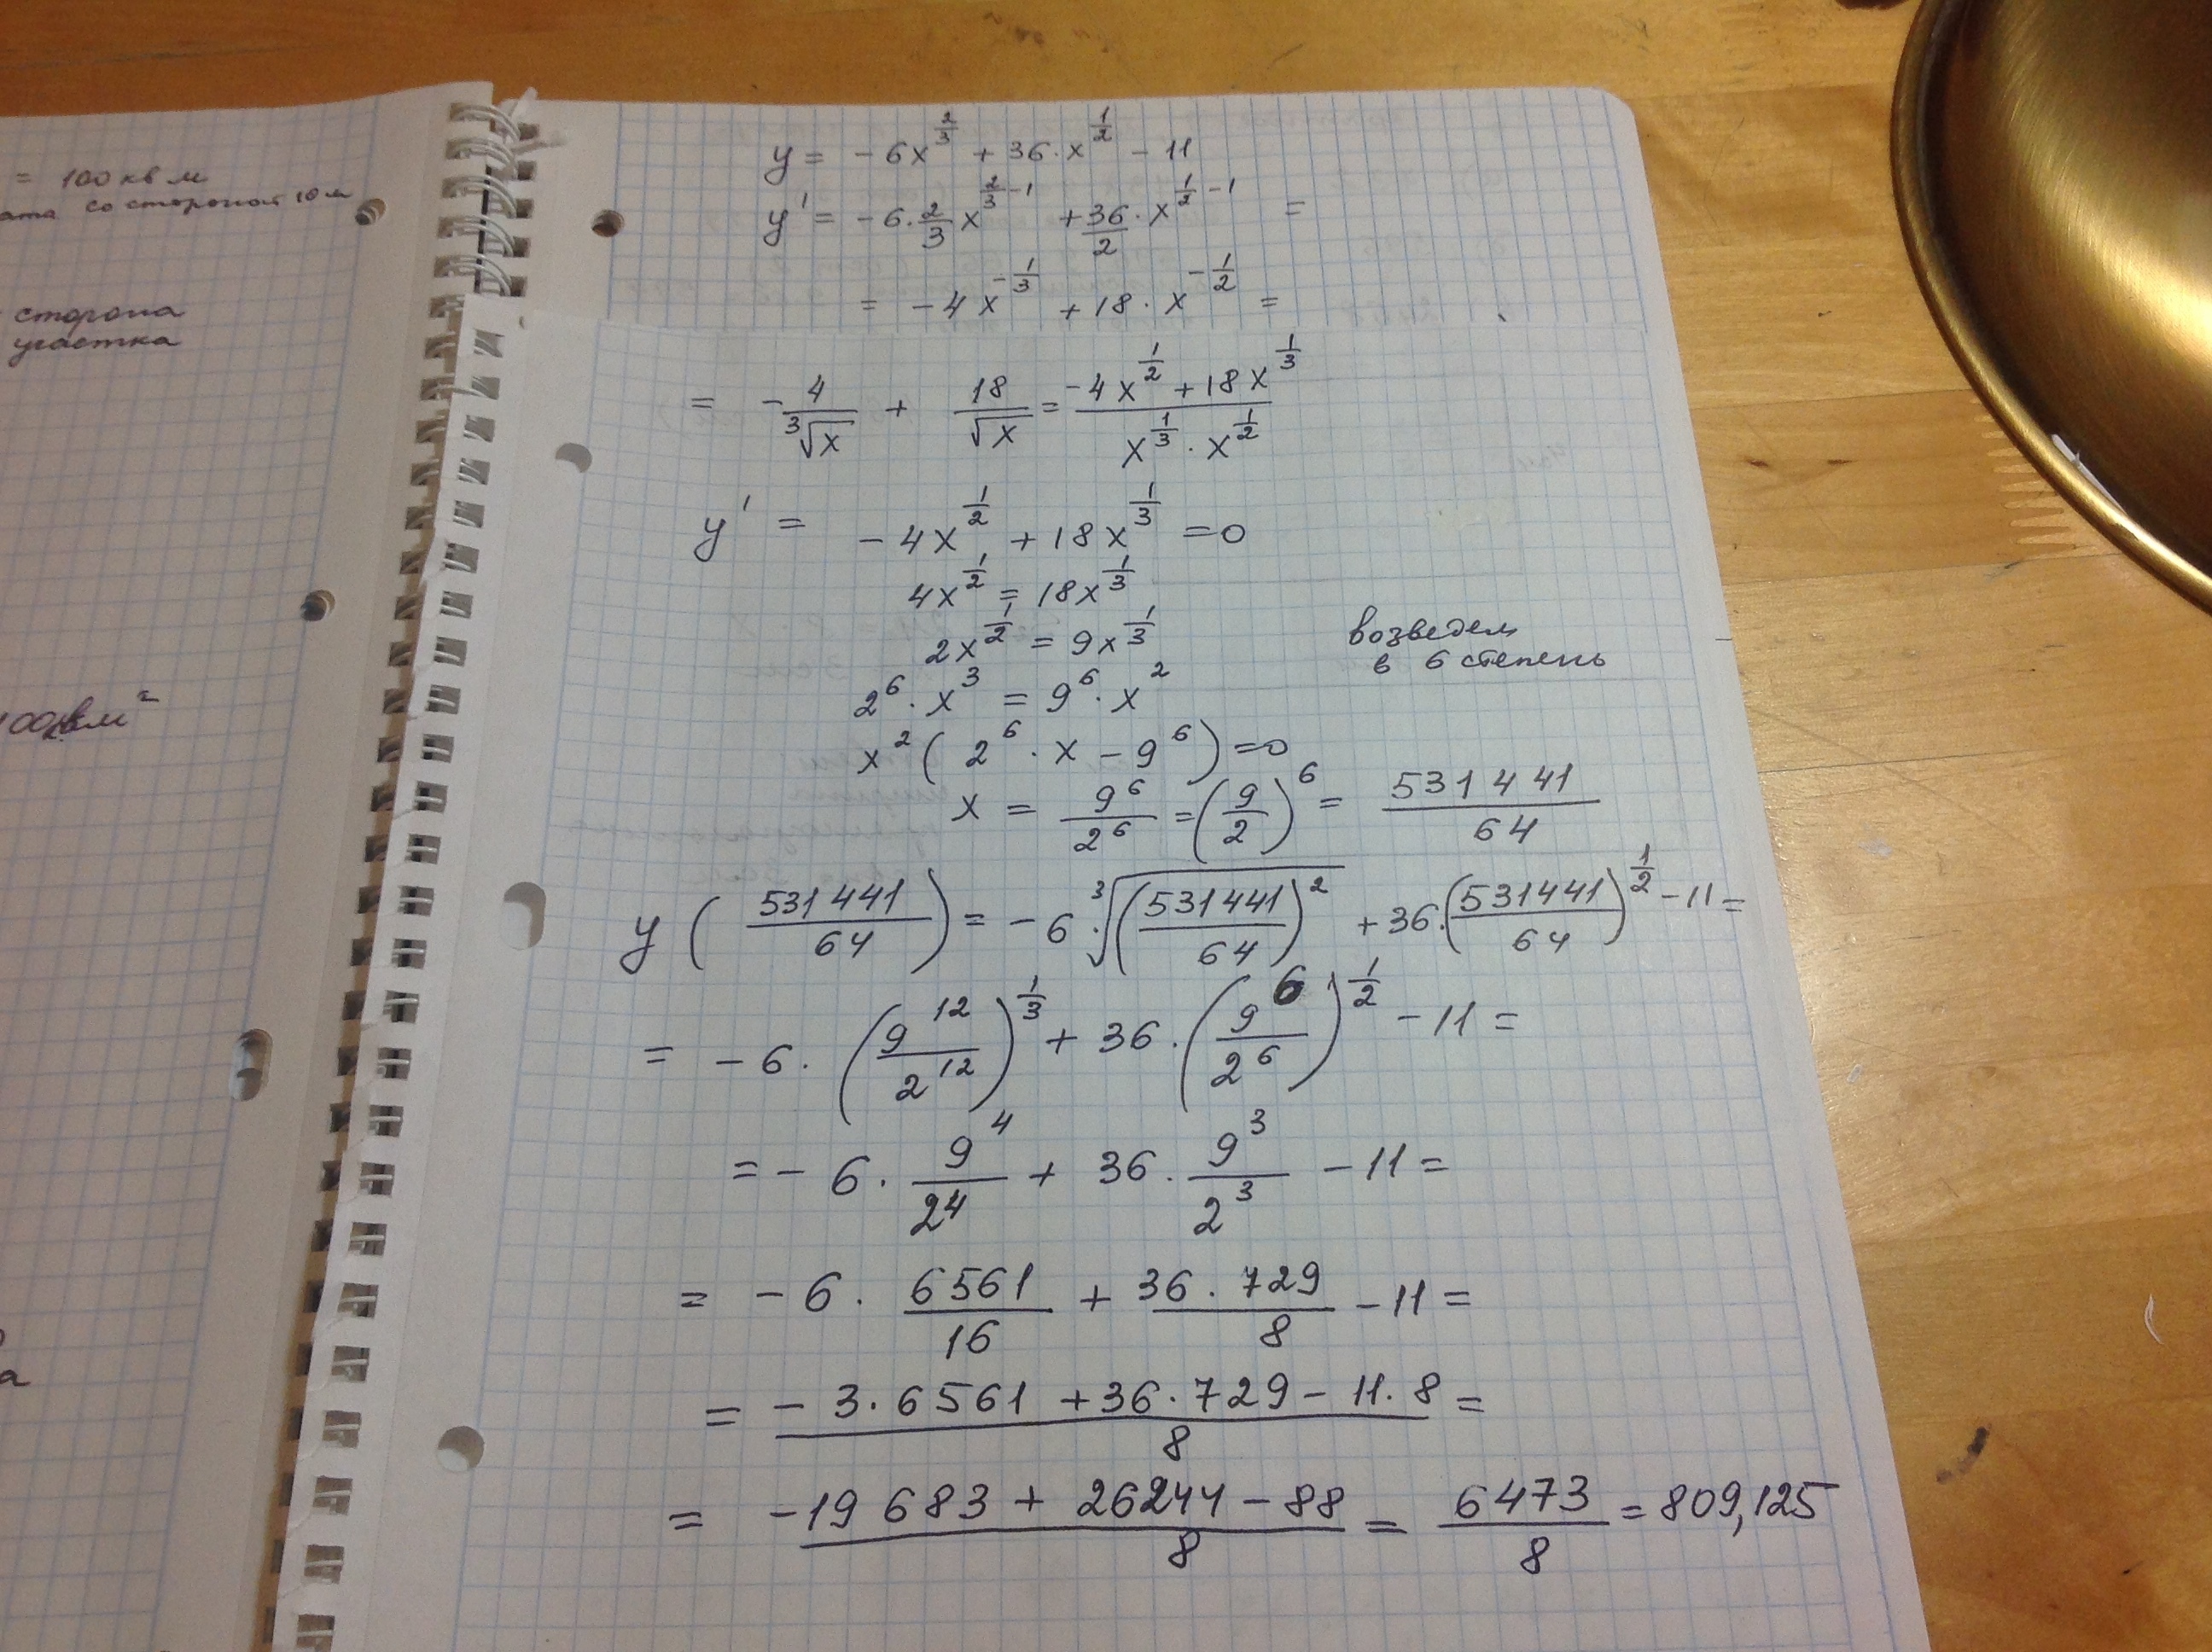 = 100 кв м
ата со стороной 10 м
сторона
участка
100 кв м²
а
y = -6x^{2/3} + 36·x^{1/2} - 11
y' = -6·\frac{2}{3}x^{2/3-1} + \frac{36}{2}·x^{1/2-1} =
= -4x^{-1/3} + 18·x^{-1/2} =
= -\frac{4}{∛x} + \frac{18}{√x} = \frac{-4x^{1/2} + 18x^{1/3}}{x^{1/3}·x^{1/2}}
y' = -4x^{1/2} + 18x^{1/3} = 0
4x^{1/2} = 18x^{1/3}
2x^{1/2} = 9x^{1/3} возведем
в 6 степень
2^6·x^3 = 9^6·x^2
x^2(2^6·x - 9^6) = 0
x = \frac{9^6}{2^6} = (\frac{9}{2})^6 = \frac{531441}{64}
y(\frac{531441}{64}) = -6·∛{(\frac{531441}{64})^2} + 36·(\frac{531441}{64})^{1/2} - 11 =
= -6·(\frac{9^{12}}{2^{12}})^{1/3} + 36·(\frac{9^6}{2^6})^{1/2} - 11 =
= -6·\frac{9^4}{2^4} + 36·\frac{9^3}{2^3} - 11 =
= -6·\frac{6561}{16} + \frac{36·729}{8} - 11 =
= \frac{-3·6561 + 36·729 - 11·8}{8} =
= \frac{-19683 + 26244 - 88}{8} = \frac{6473}{8} = 809,125